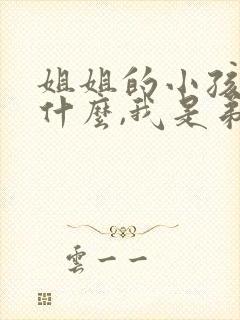 姐姐的小孩
什麼,我是弟
雲一一